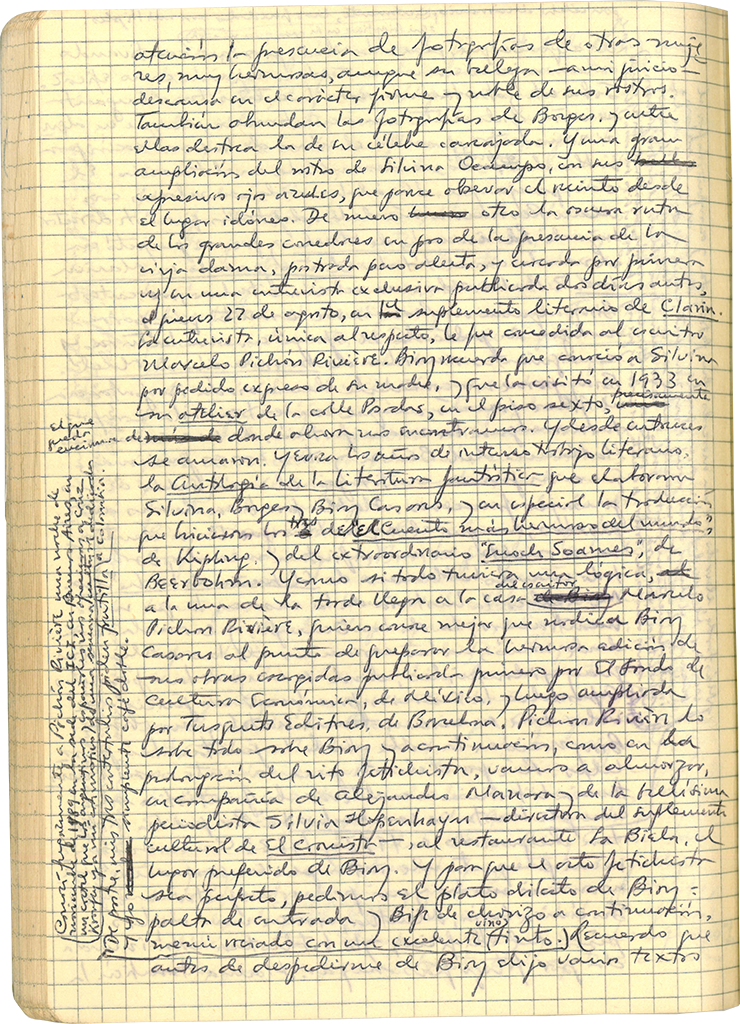 atención la presencia de fotografías de otras muje-
res, muy hermosas, aunque su belleza —a mi juicio—
descansa en el carácter firme y noble de sus rostros.
También abundan las fotografías de Borges, y entre
ellas destaca la de su célebre carcajada. Y una gran
ampliación del rostro de Silvina Ocampo, con sus
expresivos ojos azules, que parece observar el recinto desde
el lugar idóneo. De nuevo otro la oscura ruta
de los grandes corredores en pos de la presencia de la
vieja dama, postrada pero alerta, y cercada por primera
vez en una entrevista exclusiva publicada dos días antes,
el jueves 27 de agosto, en el suplemento literario de Clarín.
La entrevista, única al respecto, le fue concedida al escritor
Marcelo Pichón Rivière. Bioy recuerda que conoció a Silvina
por pedido expreso de su madre, y que la visitó en 1933 en
su atelier de la calle Posadas, en el piso sexto, precisamente
de donde ahora nos encontramos. Y desde entonces
se amaron. Y evoca los años de intenso trabajo literario,
la Antología de la literatura fantástica que elaboraron
Silvina, Borges y Bioy Casares, y en especial la traducción
que hicieron los tres de "El Cuento más hermoso del mundo",
de Kipling, y del extraordinario "Enoch Soames", de
Beerbohm. Y como si todo tuviera una lógica,
a la una de la tarde llega a la casa el escritor Marcelo
Pichon Rivière, quien conoce mejor que nadie a Bioy
Casares al punto de preparar la hermosa edición de
sus obras escogidas publicada primero por El Fondo de
Cultura Económica, de México, y luego ampliada
por Tusquets Editores, de Barcelona. Pichon Rivière lo
sabe todo sobre Bioy y a continuación, como en una
prolongación del rito fetichista, vamos a almorzar,
en compañía de Alejandro Manara y de la bellísima
periodista Silvia Hopenhayn —directora del suplemento
cultural de El Cronista—, al restaurante La Biela, el
lugar preferido de Bioy. Y para que el acto fetichista
sea perfecto, pedimos el plato dilecto de Bioy:
palta de entrada y Bife de chorizo a continuación,
menú rociado con un excelente vino (tinto.) Recuerdo que
antes de despedirme de Bioy elijo varios textos
El que
queda
encima
Conocí fugazmente a Pichón Rivière una noche de
noviembre de 1989 en la sede del ICI en Buenos Aires, en
De postre, mis dos contertulios piden frutilla a Colombia.
Y yo simplemente café doble.